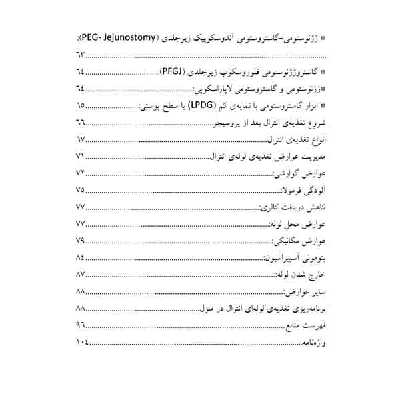 * ژژنوستومی-گاستروستومی آندوسکوپیک زیرجلدی (PEG- Jejunostomy):
......۶۳
* گاستروژژنوستومی فلوروسکوپ زیرجلدی (PFGJ)......۶۴
*ژژنوستومی و گاستروستومی لاپاراسکوپی:......۶۴
* ابزار گاستروستومی با نمایه‌ی کم (LPDG) یا سطح پوستی:......۶۵
شروع تغذیه‌ی انترال بعد از پروسیجر......۶۶
انواع تغذیه‌ی انترال......۶۷
مدیریت عوارض تغذیه‌ی لوله‌ای انترال......۷۱
عوارض گوارشی:......۷۲
آلودگی فرمولا:......۷۵
کاهش دریافت کالری:......۷۷
عوارض محل لوله:......۷۷
عوارض مکانیکی:......۷۹
پنومونی آسپیراسیون:......۸۴
خارج شدن لوله:......۸۷
سایر عوارض:......۸۸
برنامه‌ریزی تغذیه‌ی لوله‌ای انترال در منزل......۸۸
فهرست منابع......۹۶
واژه‌نامه......۱۰۴